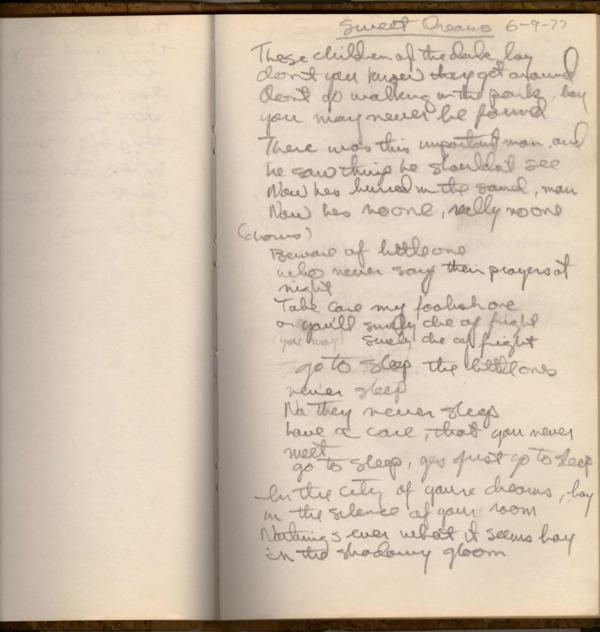 Sweet Dreams 6-9-77
These children of the dark, boy
don't you know they get around
Don't go walking in the park, boy
you may never be found
There was this important man, and
he saw things he shouldn't see
Now hes buried in the sand, man
Now hes noone, really noone
(chorus)
Beware of little one
who never say their prayers at
night
Take care my foolish one
or you'll surely die of fright
(you may) surely die of fright
go to sleep, the little ones
never sleep
No they never sleep
have a care, that you never
meet
go to sleep, just go to sleep
In the city of youre dreams, boy
in the silence of your room
Nothings ever what it seems boy
in the shadowy gloom